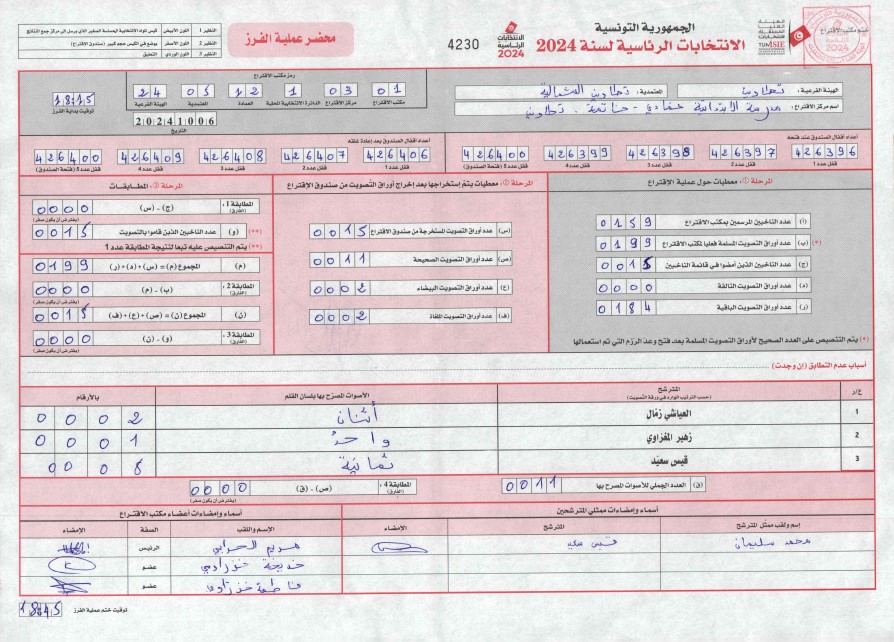 الجمهورية التونسية
الانتخابات الرئاسية لسنة 2024
الانتخابات الرئاسية 2024
4230
محضر عملية الفرز
النظير 1 اللون الأبيض
النظير 2 اللون الأصفر يوضع في الكيس حجم كبير (صندوق الاقتراع)
النظير 3 اللون الوردي التعليق
ختم مكتب الاقتراع
الهيئة الفرعية: تطاوين المعتمدية: تطاوين الشمالية
اسم مركز الاقتراع:
رمز مكتب الاقتراع
01 03 1 12 05 24
مكتب الاقتراع مركز الاقتراع الدائرة الانتخابية المحلية العمادة المعتمدية الهيئة الفرعية
18:15
توقيت بداية الفرز
20241006
التاريخ
أعداد أقفال الصندوق عند فتحه
426396 426397 426398 426399 426400
قفل عدد 1 قفل عدد 2 قفل عدد 3 قفل عدد 4 قفل عدد 5 (فتحة الصندوق)
أعداد أقفال الصندوق بعد إعادة غلقه
426406 426407 426408 426409 426400
قفل عدد 1 قفل عدد 2 قفل عدد 3 قفل عدد 4 قفل عدد 5 (فتحة الصندوق)
المرحلة ①: معطيات حول عملية الاقتراع
(أ) عدد الناخبين المرسمين بمكتب الاقتراع 0159
(*) (ب) عدد أوراق التصويت المسلمة فعليا لمكتب الاقتراع 0199
(ج) عدد الناخبين الذين أمضوا في قائمة الناخبين 0015
(د) عدد أوراق التصويت التالفة 0000
(ر) عدد أوراق التصويت الباقية 0184
(*) يتم التنصيص على العدد الصحيح لأوراق التصويت المسلمة بعد فتح وعد الرزم التي تم استعمالها
المرحلة ②: معطيات يتم إستخراجها بعد إخراج أوراق التصويت من صندوق الاقتراع
(س) عدد أوراق التصويت المستخرجة من صندوق الاقتراع 0015
(ص) عدد أوراق التصويت الصحيحة 0011
(ع) عدد أوراق التصويت البيضاء 0002
(ف) عدد أوراق التصويت الملغاة 0002
المرحلة ③: المطابقات
المطابقة 1: (الفارق) (ج) - (س) 0000
(يفترض أن يكون صفر)
(**) (و) عدد الناخبين الذين قاموا بالتصويت 0015
(**) يتم التنصيص عليه تبعا لنتيجة المطابقة عدد 1
(م) المجموع (م) = (س)+(د)+(ر) 0199
المطابقة 2: (الفارق) (ب) - (م) 0000
(يفترض أن يكون صفر)
(ن) المجموع (ن) = (ص)+(ع)+(ف) 0015
المطابقة 3: (الفارق) (و) - (ن) 0000
(يفترض أن يكون صفر)
أسباب عدم التطابق (إن وجدت)
ع/ر المترشح الأصوات المصرّح بها بلسان القلم بالأرقام
(حسب الترتيب الوارد في ورقة التصويت)
1 العياشي زمّال أثنان 0002
2 زهير المغزاوي واحد 0001
3 قيس سعيّد ثمانية 0008
(ق) العدد الجملي للأصوات المصرح بها 0011 المطابقة 4: (الفارق) (ص) - (ق) 0000
(يفترض أن يكون صفر)
أسماء وإمضاءات ممثلي المترشحين أسماء وإمضاءات أعضاء مكتب الاقتراع
إسم ولقب ممثل المترشح المترشح الإمضاء الإسم واللقب الصفة الإمضاء
محمد سليمان قيس سعيد مريم الرئيس
خديجة عضو
فاطمة عضو
توقيت ختم عملية الفرز 18:45